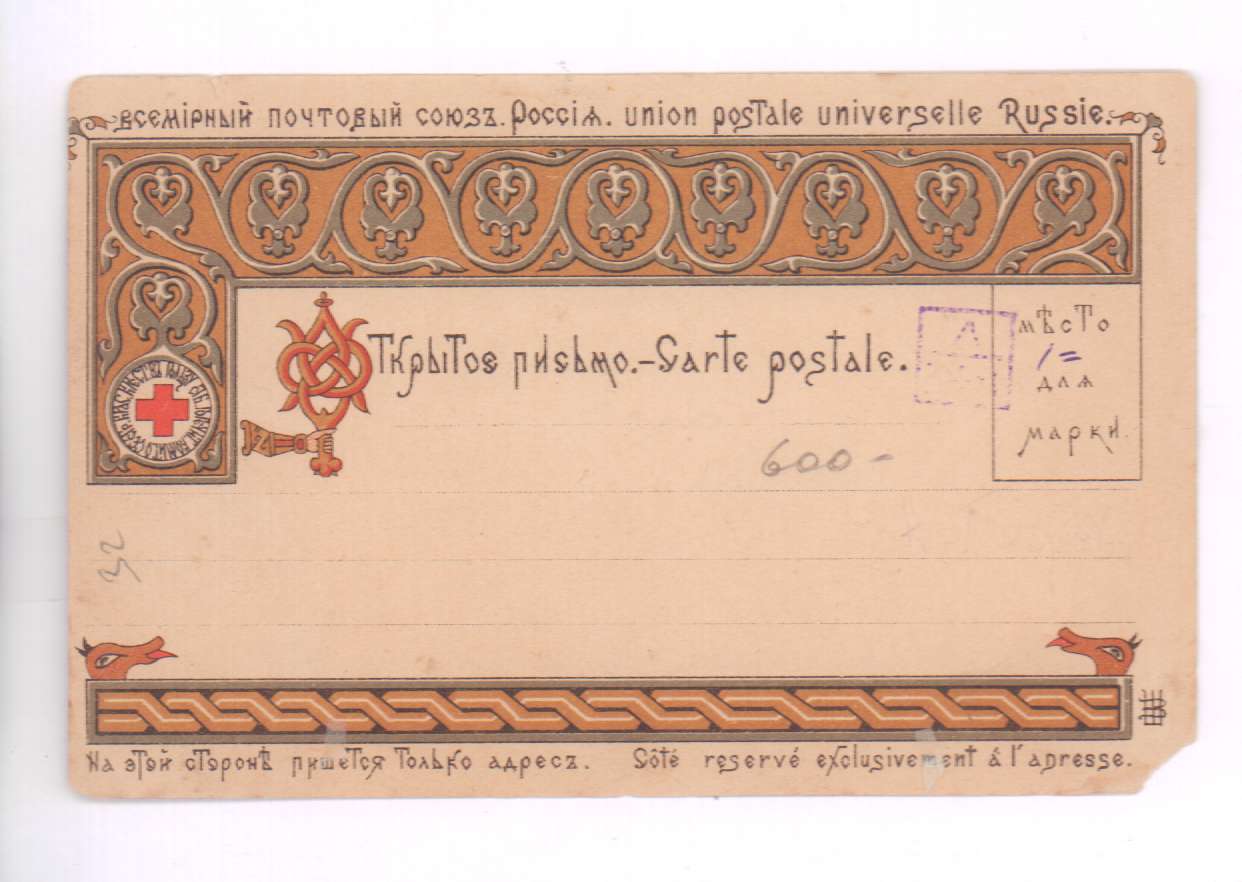 всемірный почтовый союзъ. Россія. union postale universelle Russie.
Открытое письмо.-Carte postale.
мѣсто
1=
для
марки.
600-
32
На этой сторонѣ пишется только адресъ. Côté reservé exclusivement á l'adresse.